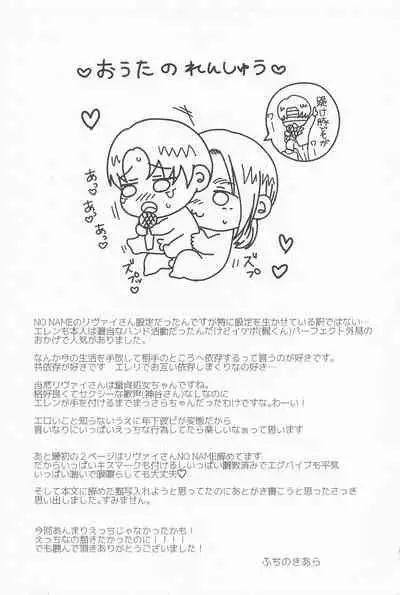 ♡おうたのれんしゅう♡
跪け豚どもが
ワー
ワー
あっ♡
あっ♡
あっ♡
あっ♡
ズプ
ズプッ
NO NAMEのリヴァイさん設定だったんですが特に設定を生かせている訳ではない…
エレンも本人は適当なバンド活動だったんだけどイケボ(梶くん)パーフェクト外見の
おかげで人気がありました。
なんか今の生活を手放して相手のところへ依存するって言うのが好きです。
共依存が好きです　エレリでお互い依存しまくりなの好き…
当然リヴァイさんは童貞処女ちゃんですね。
格好良くてセクシーな歌声(神谷さん)なLなのに
エレンが手を付けるまでまっさらちゃんだったわけですな。わーい!
エロいこと知らないうえに年下彼ピが変態だから
言いなりにいっぱいえっちな行為してたら楽しいなぁって思います
あと最初の2ページはリヴァイさんNO NAME辞めてます
だからいっぱいキスマークも付けるしいっぱい調教済みでエグバイブも平気
いっぱい喘いで喉嗄らしても大丈夫♡
そして本文に辞めた描写入れようと思ってたのにあとがき書こうと思ったさっき
思い出しました。すみません。
今回あんまりえっちじゃなかったかも!
えっちなの描きたかったのに!!!!
でも読んで頂きありがとうございました!
ふちのきあら